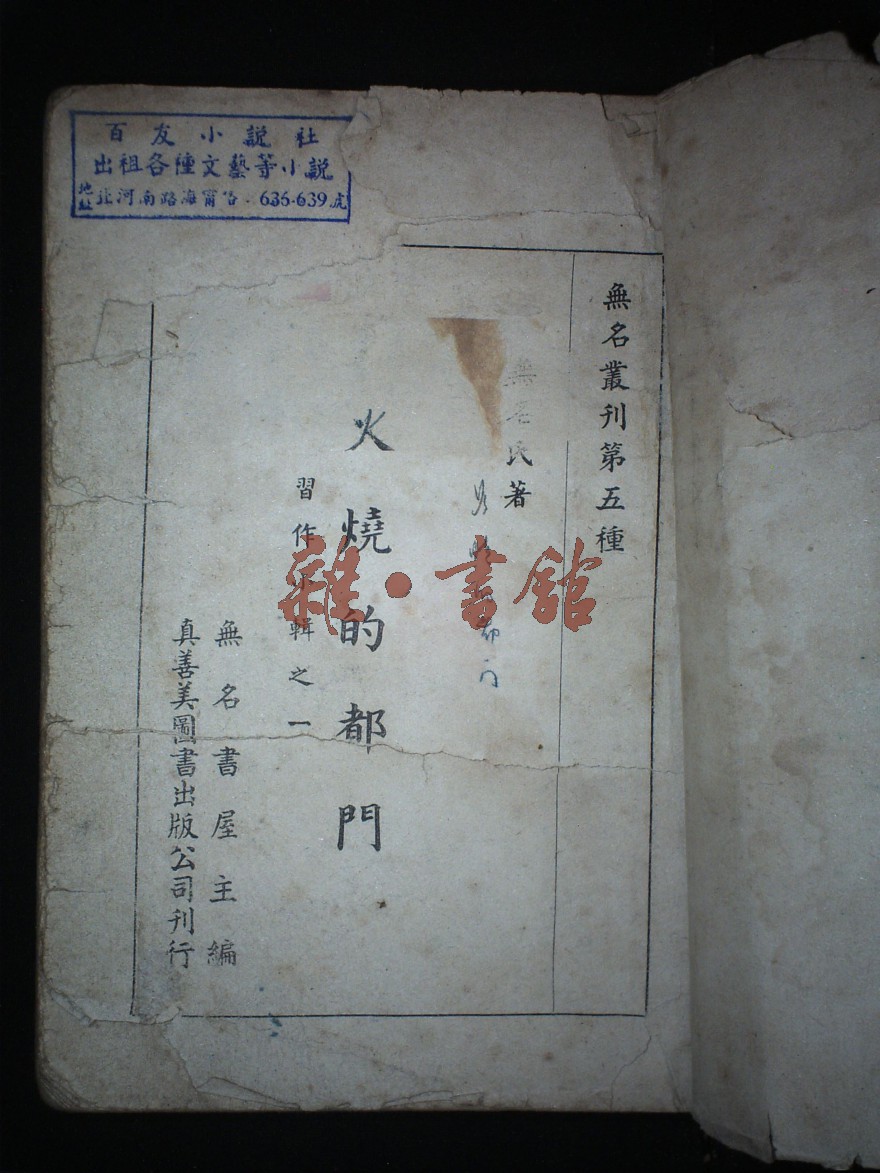 百友小説社
出祖各種文藝等小說
地址北河南路海甯路·635·639號
無名叢刊第五種
無名氏著
都门
火燒的都門
習作小輯之一
無名書屋主編
真善美圖書出版公司刊行
雜·書館